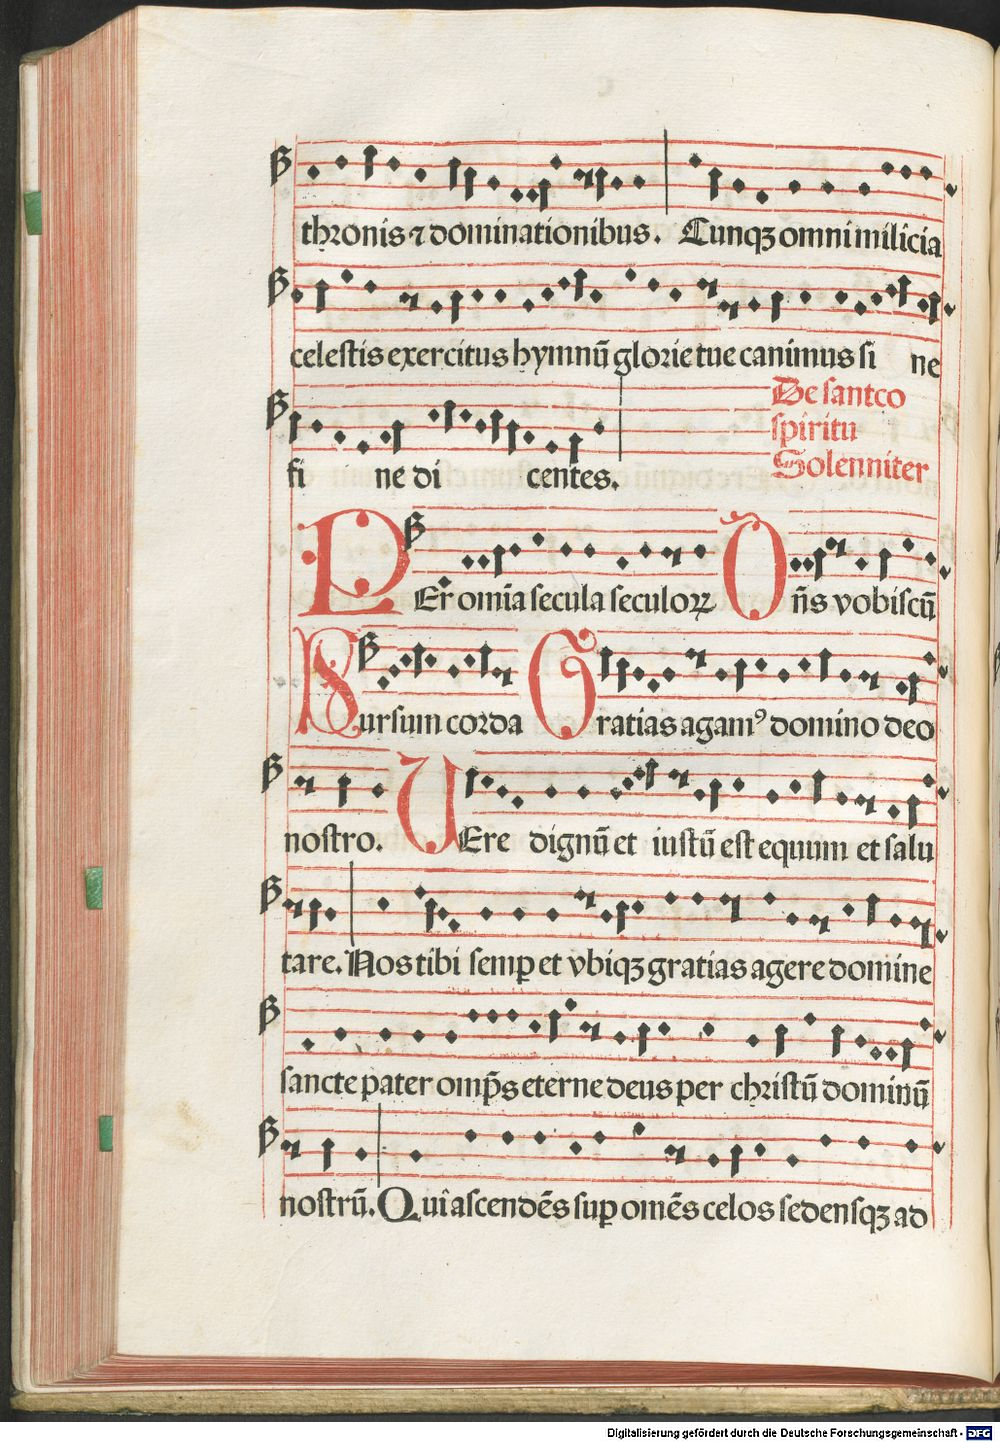 thronis ⁊ dominationibus. Cunqꝫ omni milicia
celestis exercitus hymnū glorie tue canimus si ne
fi ne di centes.
De santco
spiritu
Solenniter
PEr om̄ia secula seculoꝝ Dn̄s vobiscū
Sursum corda Gratias agamꝰ domino deo
nostro. VEre dignū et iustū est equum et salu
tare. Nos tibi semꝑ et vbiqꝫ gratias agere domine
sancte pater omp̄s eterne deus per christū dominū
nostrū. Qui ascendēs suꝑ omēs celos sedensqꝫ ad
Digitalisierung gefördert durch die Deutsche Forschungsgemeinschaft - DFG